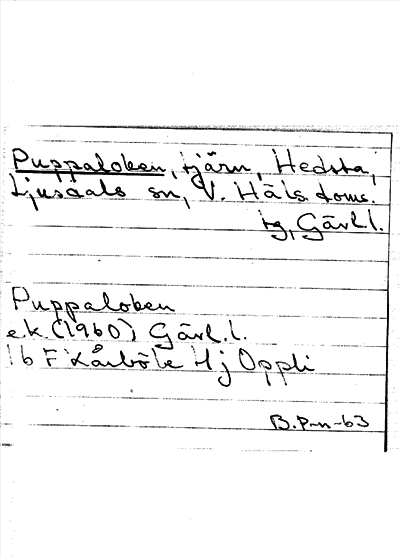 Puppaloken, tjärn, Hedsta,
Ljusdals sn, V. Häls. doms.
tg, Gävl.l.
Puppaloken
e.k. (1960) Gävl.l.
16 F Kårböle 4 j Öppli
B. P-n-63